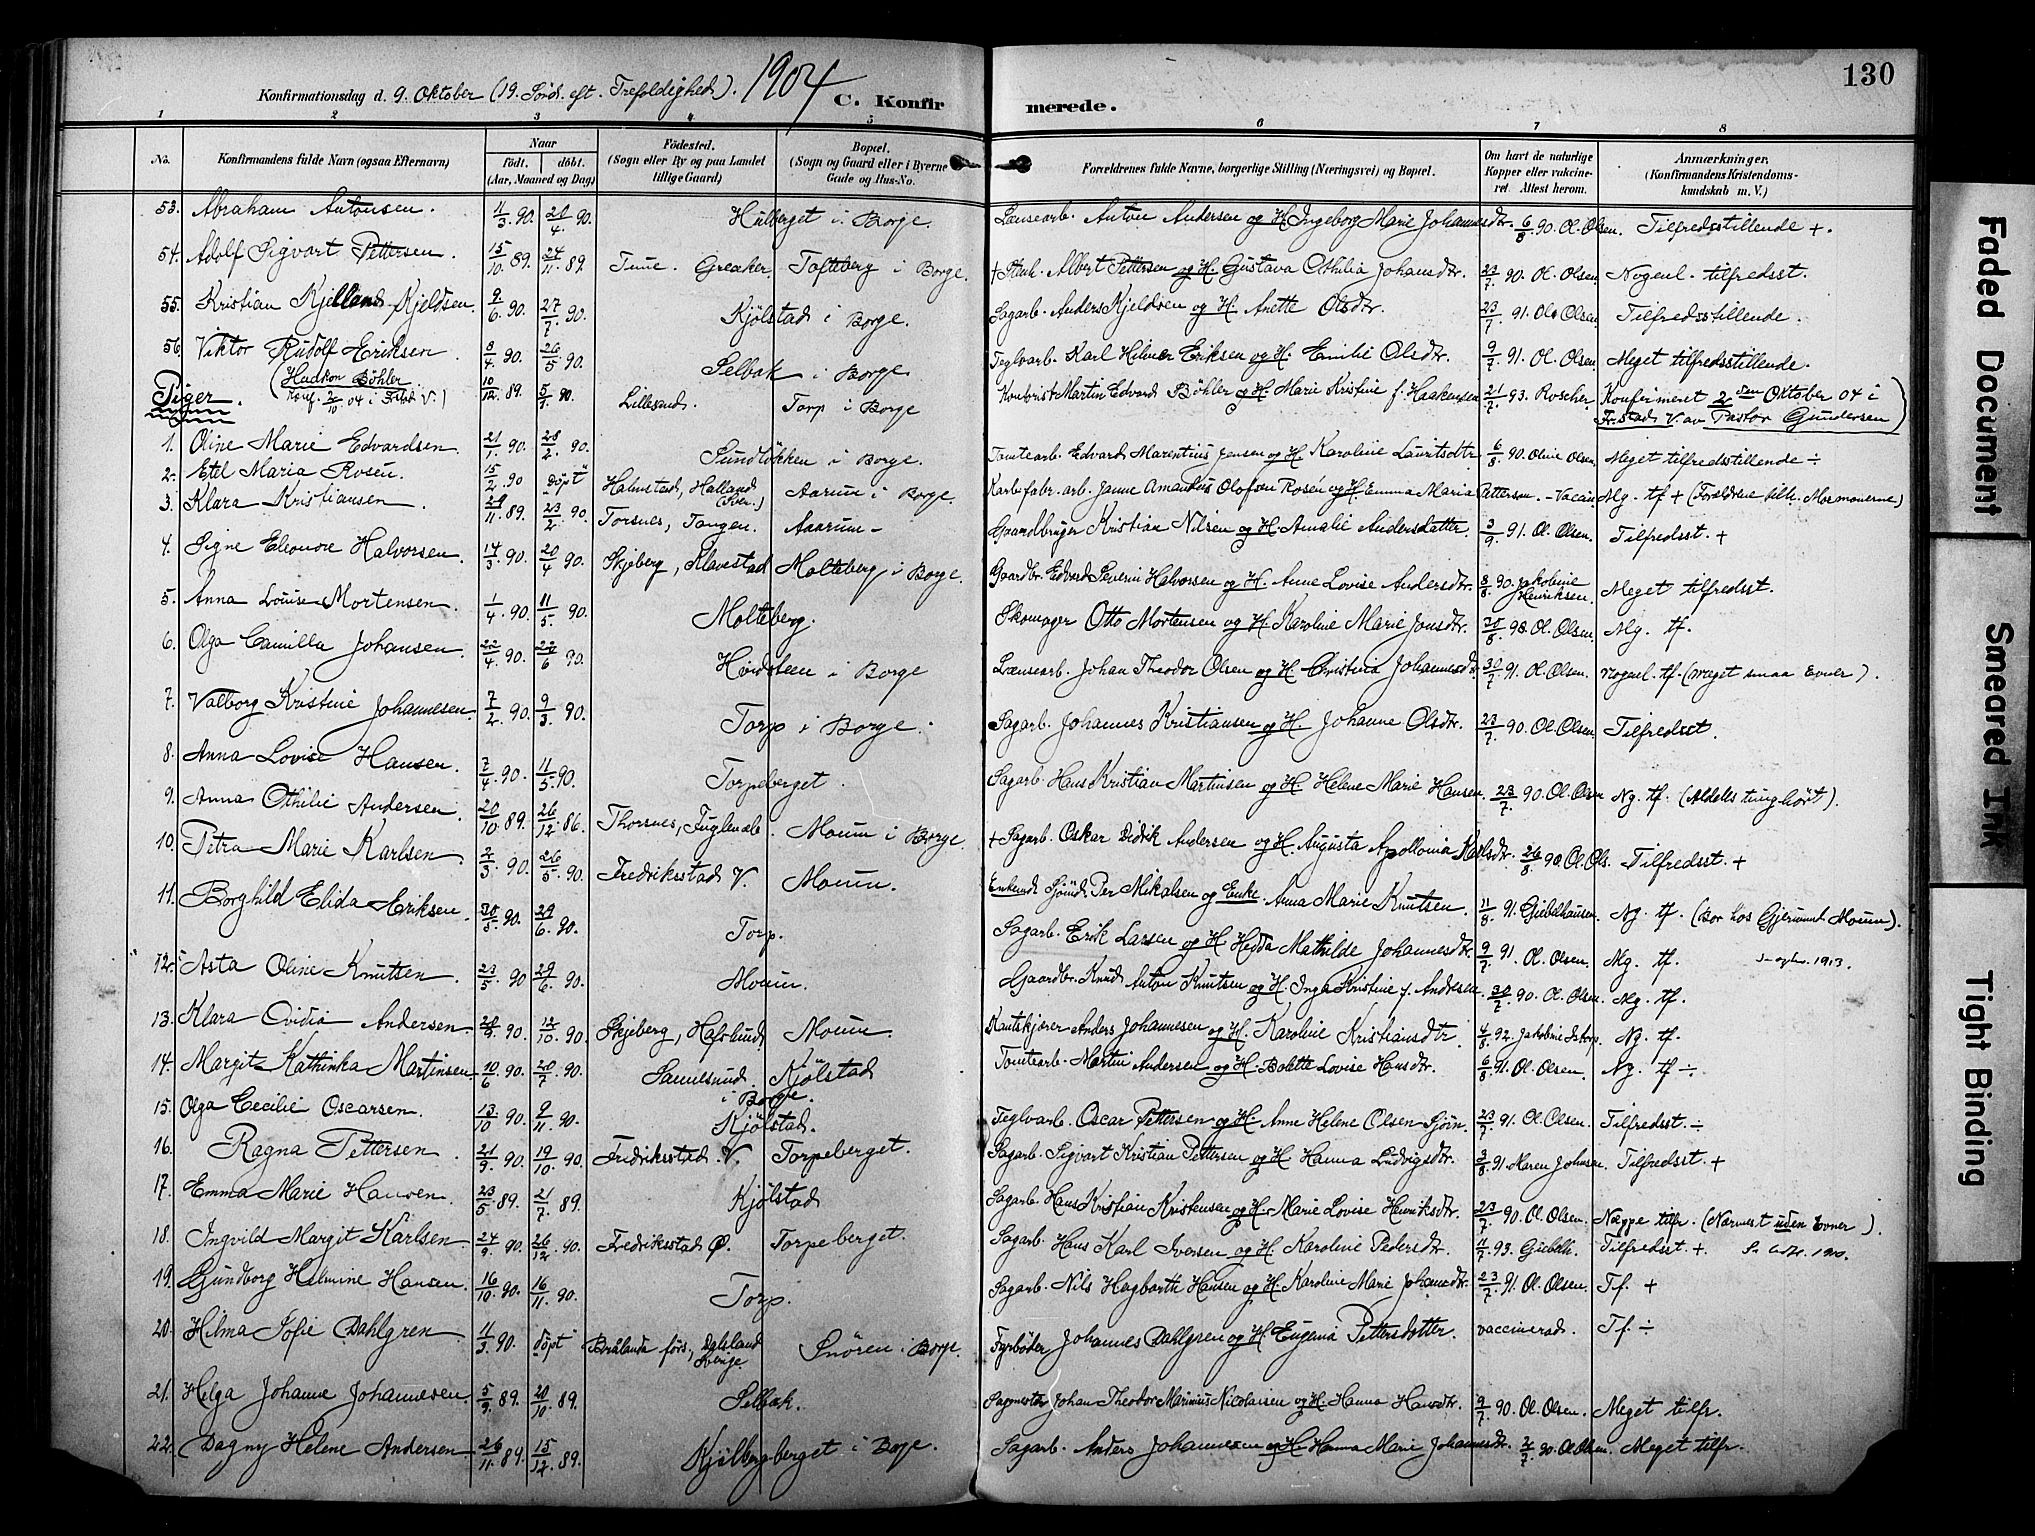 Konfirmationsdag d. 9. Oktober (19. Sönd. eft. Trefoldighed). 1904 C. Konfirmerede. 130
1 2 3 4 5 6 7 8
No. Konfirmandens fulde Navn (ogsaa Efternavn) Naar födt. döbt. (Aar, Maaned og Dag) Födested. (Sogn eller By og paa Landet tillige Gaard) Bopæl. (Sogn og Gaard eller i Byerne Gade og Hus-No. Forældrenes fulde Navne, borgerlige Stilling (Næringsvei) og Bopæl. Om havt de naturlige Kopper eller vakcineret. Attest herom. Anmærkninger. (Konfirmandens Kristendomskundskab m. V.)
53. Abraham Antonsen. 11/3 90. 20/4 90. Hulberget i Borge. Lænsearb. Anton Andersen og H. Ingeborg Marie Johannesdtr. 6/8 90. Ol. Olsen. Tilfredsstillende +.
54. Adolf Sigvart Pettersen. 15/10 89. 24/11 89. Tune. Greaker. Tofteberg i Borge. + Stenh. Albert Pettersen og H. Gustava Othilia Johansdtr. 23/7 90. Ol. Olsen. Nogenl. tilfredsst.
55. Kristian Kjelland Kjeldsen. 9/6 90. 27/7 90. Kjölstad i Borge. Sagarb. Anders Kjeldsen og H. Anette Olsdtr. 23/7 91. Ole Olsen. Tilfredsstillende.
56. Viktor Rudolf Eriksen. 8/4 90. 26/5 90. Selbak i Borge. Teglvarb. Karl Hilmer Eriksen og H. Emilie Olsdtr. 9/7 91. Ol. Olsen. Meget tilfredsstillende.
(Haakon Böhler 10/12 89. 5/1 90. Lillesand. Torp i Borge Kontorist Martin Edvard Böhler og H. Marie Kristine f. Haakensen 21/7 93. Roscher. Konfirmeret 2den Oktober 04 i
Konf. 2/10 04 i Fstad V.) Fr.stad V. av Pastor Gundersen)
Piger.
1. Oline Marie Edvardsen 21/1 90. 28/2 90. Sundlökken i Borge. Tomtearb. Edvard Marentius Jensen og H. Karoline Lauritsdtr. 6/8 90. Oline Olsen. Meget tilfredsstillende ÷
2. Etel Maria Rosén. 15/2 90 "döpt" Halmstad, Halland (Sver.) Aarum i Borge Karbidfabr. arb. Janne Amandus Olofson Rosén og H. Emma Maria Petterson. - Vaccin. Mg. tf + (Forældrene tilh. Mormonerne)
3. Klara Kristiansen. 20/11 89. 23/2 90. Torsnes, Tangen. Aaarum - Gaardbruger Kristian Nilsen og H. Amalie Andersdatter. 3/9 91. Ol. Olsen. Tilfredsst. +
4. Signe Eleonore Halvorsen. 14/3 90. 20/4 90. Skjeberg, Klavestad Molteberg i Borge. Gaardbr. Edvard Severin Halvorsen og H. Anne Lovise Andersdtr. 8/8 90. Jakobine Henriksen. Meget tilfredsst.
5. Anna Louise Mortensen. 1/4 90. 11/5 90. Molteberg. Skomager Otto Mortensen og H. Karoline Marie Jonsdtr. 30/8 98. Ol. Olsen. Mg. tf.
6. Olga Camilla Johansen. 22/4 90. 22/6 90. Hvidsteen i Borge Lænsearb. Johan Theodor Olsen og H. Christina Johannesdtr. 30/7 91. Ol. Olsen. Nogenl. tf. (meget smaa Evner).
7. Valborg Kristine Johannesen. 7/2 90. 9/3 90. Torp i Borge. Sagarb. Johannes Kristiansen og H. Johanne Olsdtr. 23/7 90. Ol. Olsen. Tilfredsst.
8. Anna Lovise Hansen. 7/4 90. 11/5 90. Torpeberget. Sagarb. Hans Kristian Martinsen og H. Helene Marie Hansen. 23/7 90. Ol. Olsen Ng. tf. (Aldeles tunghört).
9. Anna Othilie Andersen. 20/10 89. 26/12 86. Thorsnes, Fuglevæb. Moum i Borge. + Sagarb. Oskar Didrik Andersen og H. Augusta Apollonia Karlsdtr. 26/8 90. Ol. Ols. Tilfredsst. +
10. Petra Marie Karlsen. 2/3 90. 26/5 90. Fredriksstad V. Moum. Enkemd. Sjömd. Per Mikalsen og Enke Anna Marie Knutsen. 11/8 91. Giebelhausen. Ng. tf. (bor hos Gjermund Moum).
11. Borghild Elida Eriksen. 30/5 90. 29/6 90. Torp. Sagarb. Erik Larsen og H. Hedda Mathilde Johannesdtr. 9/7 91. Ol. Olsen. Mg. tf. 1913.
12. Asta Oline Knutsen. 23/5 90 29/6 90. Moum. Gaardbr. Knud Anton Knutsen og H. Inga Kristine f. Andresen. 30/7 90. Ol. Olsen. Mg. tf.
13. Klara Ovidia Andersen. 28/9 90. 12/10 90. Skjeberg, Hafslund. Moum. Kantskjærer Anders Johannesen og H. Karoline Kristiansdtr. 4/8 92. Jakobine Ng. tf.
14. Margit Kathinka Martinsen. 10/6 90. 20/7 90. Sannesund. Kjölstad i Borge. Tomtearb. Martin Andersen og H. Bolette Lovise Hansdtr. 6/8 91. Ol. Olsen. Ng. tf ÷
15. Olga Cecilie Oscarsen. 13/10 90. 9/11 90. Kjölstad. Teglvarb. Oscar Pettersen og H. Anne Helene Olsen Sjöin. 23/7 91. Ol. Olsen. Tilfredsst. ÷
16. Ragna Pettersen. 21/9 90. 19/10 90. Fredriksstad V. Torpeberget. Sagarb. Sigvart Kristian Pettersen og H. Hanna Ludvigsdtr. 3/8 91 Maren Johnsen. Tilfredsst. +
17. Emma Marie Hansen. 23/5 89. 21/7 89. Kjölstad Sagarb. Hans Kristian Kristensen og H. Marie Lovise Henriksdtr. 23/7 90. Ol. Olsen. Næppe tilfr. (Nærmest uden Evner).
18. Ingvild Margit Karlsen. 24/9 90. 26/12 90. Fredriksstad Ø. Torpeberget. Sagarb. Hans Karl Iversen og H. Karoline Pedersdtr. 11/7 93. Giebelh. Tilfredsst. +
19. Gundborg Helmine Hansen. 16/10 90. 16/11 90. Torp. Sagarb. Nils Hagbarth Hansen og H. Karoline Marie Johansdtr. 23/7 91. Ol. Olsen. Tf. +
20. Hilma Sofie Dahlgren 11/3 90. döpt Brålanda förs., Dalsland Sverige. Snören i Borge. Fyrböder Johannes Dahlgren og H. Eugenia Pettersdotter. vaccinerad. Tf. ÷
21. Helga Johanne Johannesen. 5/9 89. 20/10 89. Selbak. Sagmester Johan Theodor Marinius Nicolaisen og H. Hanna Hansdtr. 9/7 90. Ol. Olsen. Meget tilfr.
22. Dagny Helene Andersen. 26/11 89. 15/12 89. Kjölbergberget i Borge. Sagarb. Anders Johannesen og H. Hanna Marie Johannesdtr. 2/7 90. Ol. Olsen. Meget tilfr.
Faded Document
Smeared Ink
Tight Binding